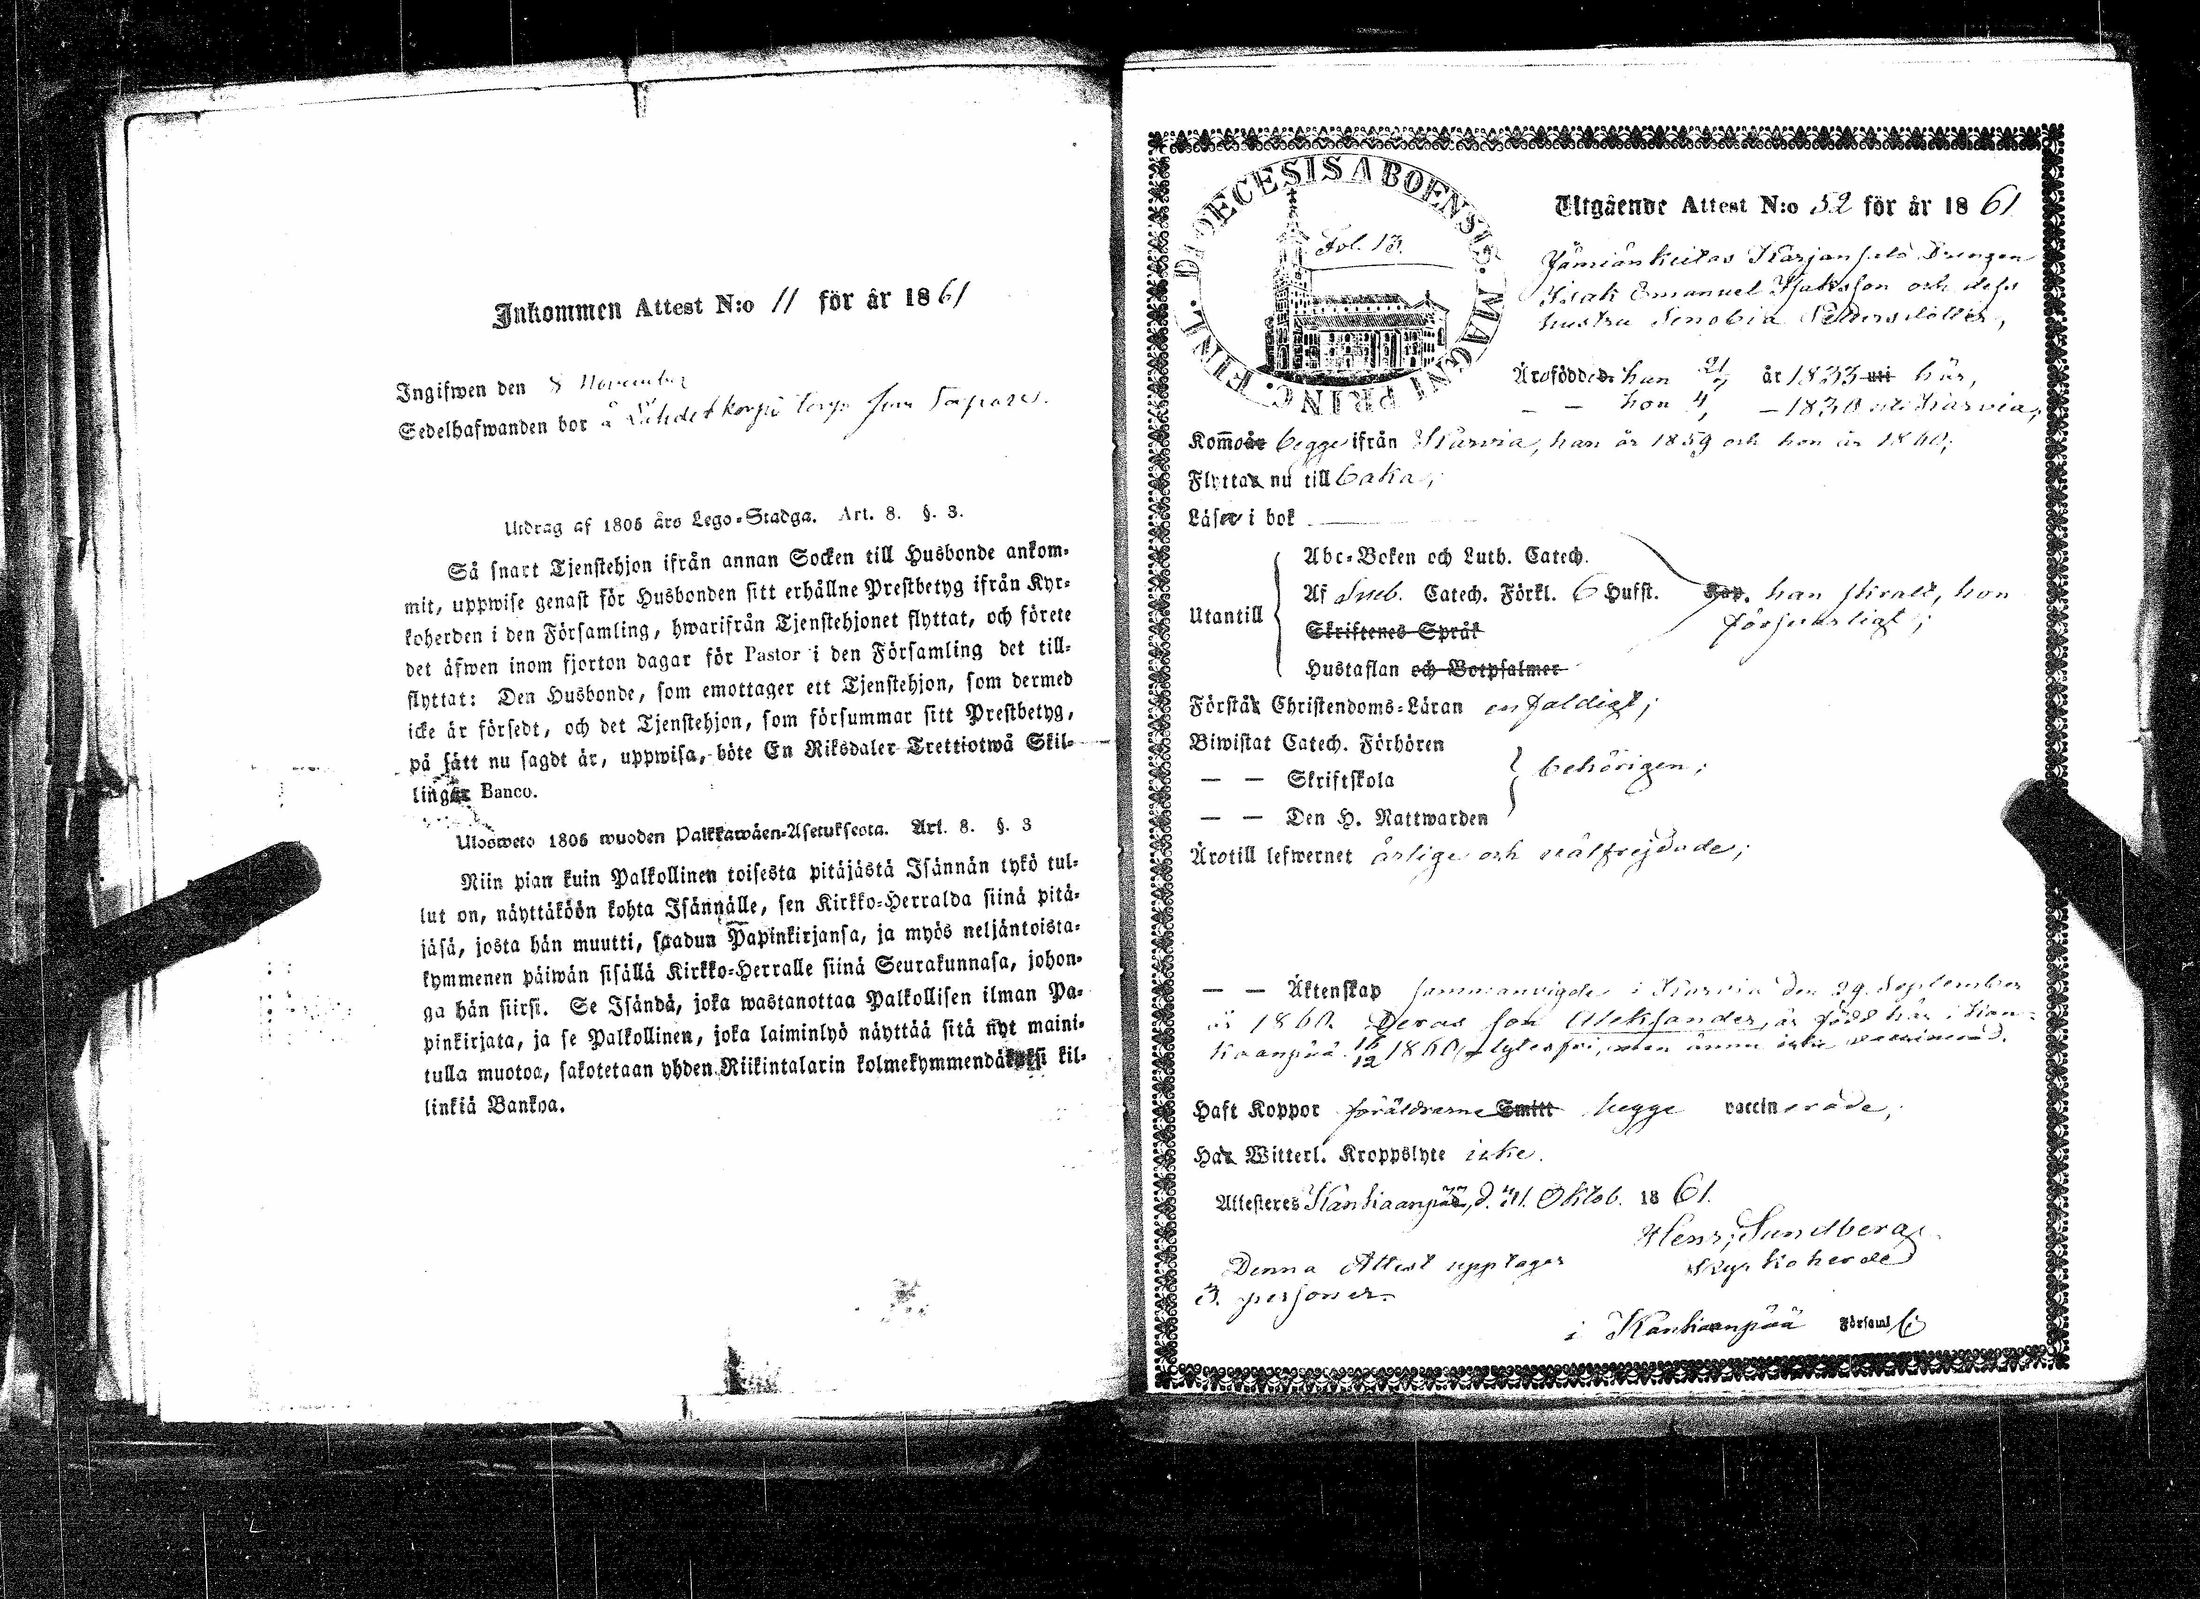 Inkommen Attest N:o 11 för år 1861
Ingifwen den 8 November
Sedelhafwanden bor å Lähdetkorpi torp som
Utdrag af 1805 års Lego-Stadga. Art. 8. §. 3.
Så snart Tjenstehjon ifrån annan Socken till Husbonde ankom-
mit, uppwise genast för Husbonden sitt erhållne Prestbetyg ifrån Kyr-
koherden i den Församling, hwarifrån Tjenstehjonet flyttat, och förete
det äfwen inom fjorton dagar för Pastor i den Församling det till-
flyttat: Den Husbonde, som emottager ett Tjenstehjon, som dermed
icke är försedt, och det Tjenstehjon, som försummar sitt Prestbetyg,
på sätt nu sagdt är, uppwisa, böte En Riksdaler Trettiotwå Skil-
lingar Banco.
Ulosweto 1805 wuoden Palkkawäen-Asetuksesta. Art. 8. §. 3
Niin pian kuin Palkollinen toisesta pitäjästä Isännän tykö tul-
lut on, näyttäköön kohta Isännälle, sen Kirkko-Herralda siinä pitä-
jäsä, josta hän muutti, saadun Papinkirjansa, ja myös neljäntoista-
kymmenen päiwän sisällä Kirkko-Herralle siinä Seurakunnasa, johon-
ga hän siirsi. Se Isändä, joka wastanottaa Palkollisen ilman Pa-
pinkirjata, ja se Palkollinen, joka laiminlyö näyttää sitä nyt maini-
tulla muotoa, sakotetaan yhden Riikintalarin kolmekymmendäkaksi kil-
linkiä Bankoa.
DIOECESIS ABOENSIS. MAGNI PRINC. FINL.
Fol. 13.
Utgående Attest N:o 52 för år 1861
Jämiänkeitas Karjanselä Drengen
Isak Emanuel Isaksson och dess
hustru Senobia
Äro födde han 21/7 år 1833 uti här,
— — hon — 1830 uti Karvia,
Komo är begge ifrån Karvia, han år 1859 och hon år 1860;
Flyttar nu till baka;
Läser i bok
Abc-Boken och Luth. Catech.
Utantill Af Sveb. Catech. Förkl. 6 Hufst. Kap. han skralt, hon
Skriftenes Språk försvarligt;
Hustaflan och Botpsalmer
Förstår Christendoms-Läran enfaldigt;
Biwistat Catech. Förhören
— — Skriftskola behörigen;
— — Den H. Nattwarden
Äro till lefwernet ärlige och välfrejdade;
— — Äktenskap sammanvigde i Karvia den 29. September
år 1860. Deras son Aleksander, är född här i Kan-
kaanpää 16/12 1860, lytesfri, men ännu icke vaccinerad.
Haft Koppor föräldrarne Smitt begge vaccinerade,
Har Witterl. Kroppslyte icke.
Attesteres Kankaanpää, d. 31. Oktob. 1861.
Henr. Sundberg
Kyrkoherde
Denna Attest upptager
3. personer.
i Kankaanpää Församl